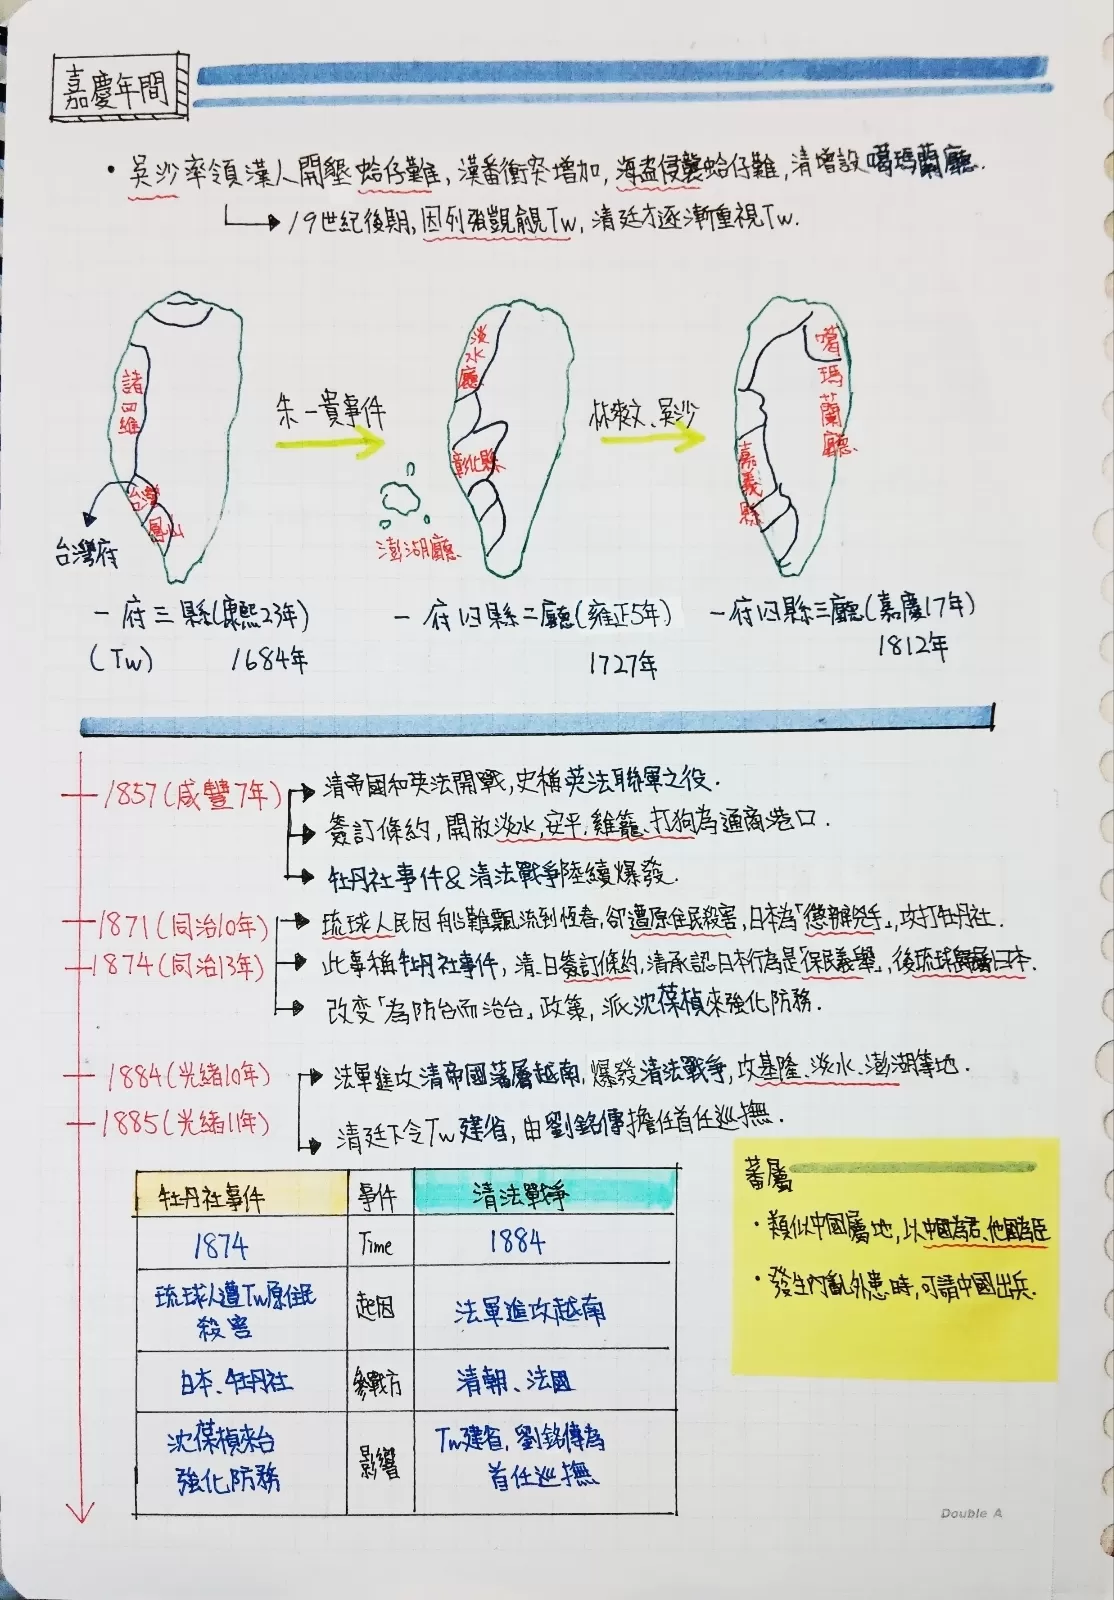 嘉慶年間
・吳沙率領漢人開墾蛤仔難,漢番衝突增加,海盜侵襲蛤仔難,清增設噶瑪蘭廳.
19世紀後期,因列強覬覦Tw,清廷才逐漸重視Tw.
諸羅
台灣
鳳山
台灣府
朱一貴事件
淡水廳
彰化縣
澎湖廳
林爽文、吳沙
噶瑪蘭廳
嘉義縣
一府三縣(康熙23年)
(Tw) 1684年
一府四縣二廳(雍正5年)
1727年
一府四縣三廳(嘉慶17年)
1812年
1857(咸豐7年)
清帝國和英法開戰,史稱英法聯軍之役.
簽訂條約,開放淡水,安平,雞籠、打狗為通商港口.
牡丹社事件&清法戰爭陸續爆發.
1871(同治10年)
琉球人民因船難飄流到恆春,卻遭原住民殺害,日本為「懲辦兇手」,攻打牡丹社.
1874(同治13年)
此事稱牡丹社事件,清日簽訂條約,清承認日本行為是「保民義舉」,後琉球歸屬日本.
改变「為防台而治台」政策,派沈葆楨來強化防務.
1884(光緒10年)
法軍進攻清帝國藩屬越南,爆發清法戰爭,攻基隆、淡水、澎湖等地.
1885(光緒11年)
清廷下令Tw建省,由劉銘傳擔任首任巡撫.
牡丹社事件 事件 清法戰爭
1874 Time 1884
琉球人遭Tw原住民
殺害
起因
法軍進攻越南
日本、牡丹社 參戰方 清朝、法國
沈葆楨來台
強化防務
影響
Tw建省,劉銘傳為
首任巡撫
蕃屬
・類似中國屬地,以中國為君、他國為臣
・發生內亂外患時,可請中國出兵.
Double A